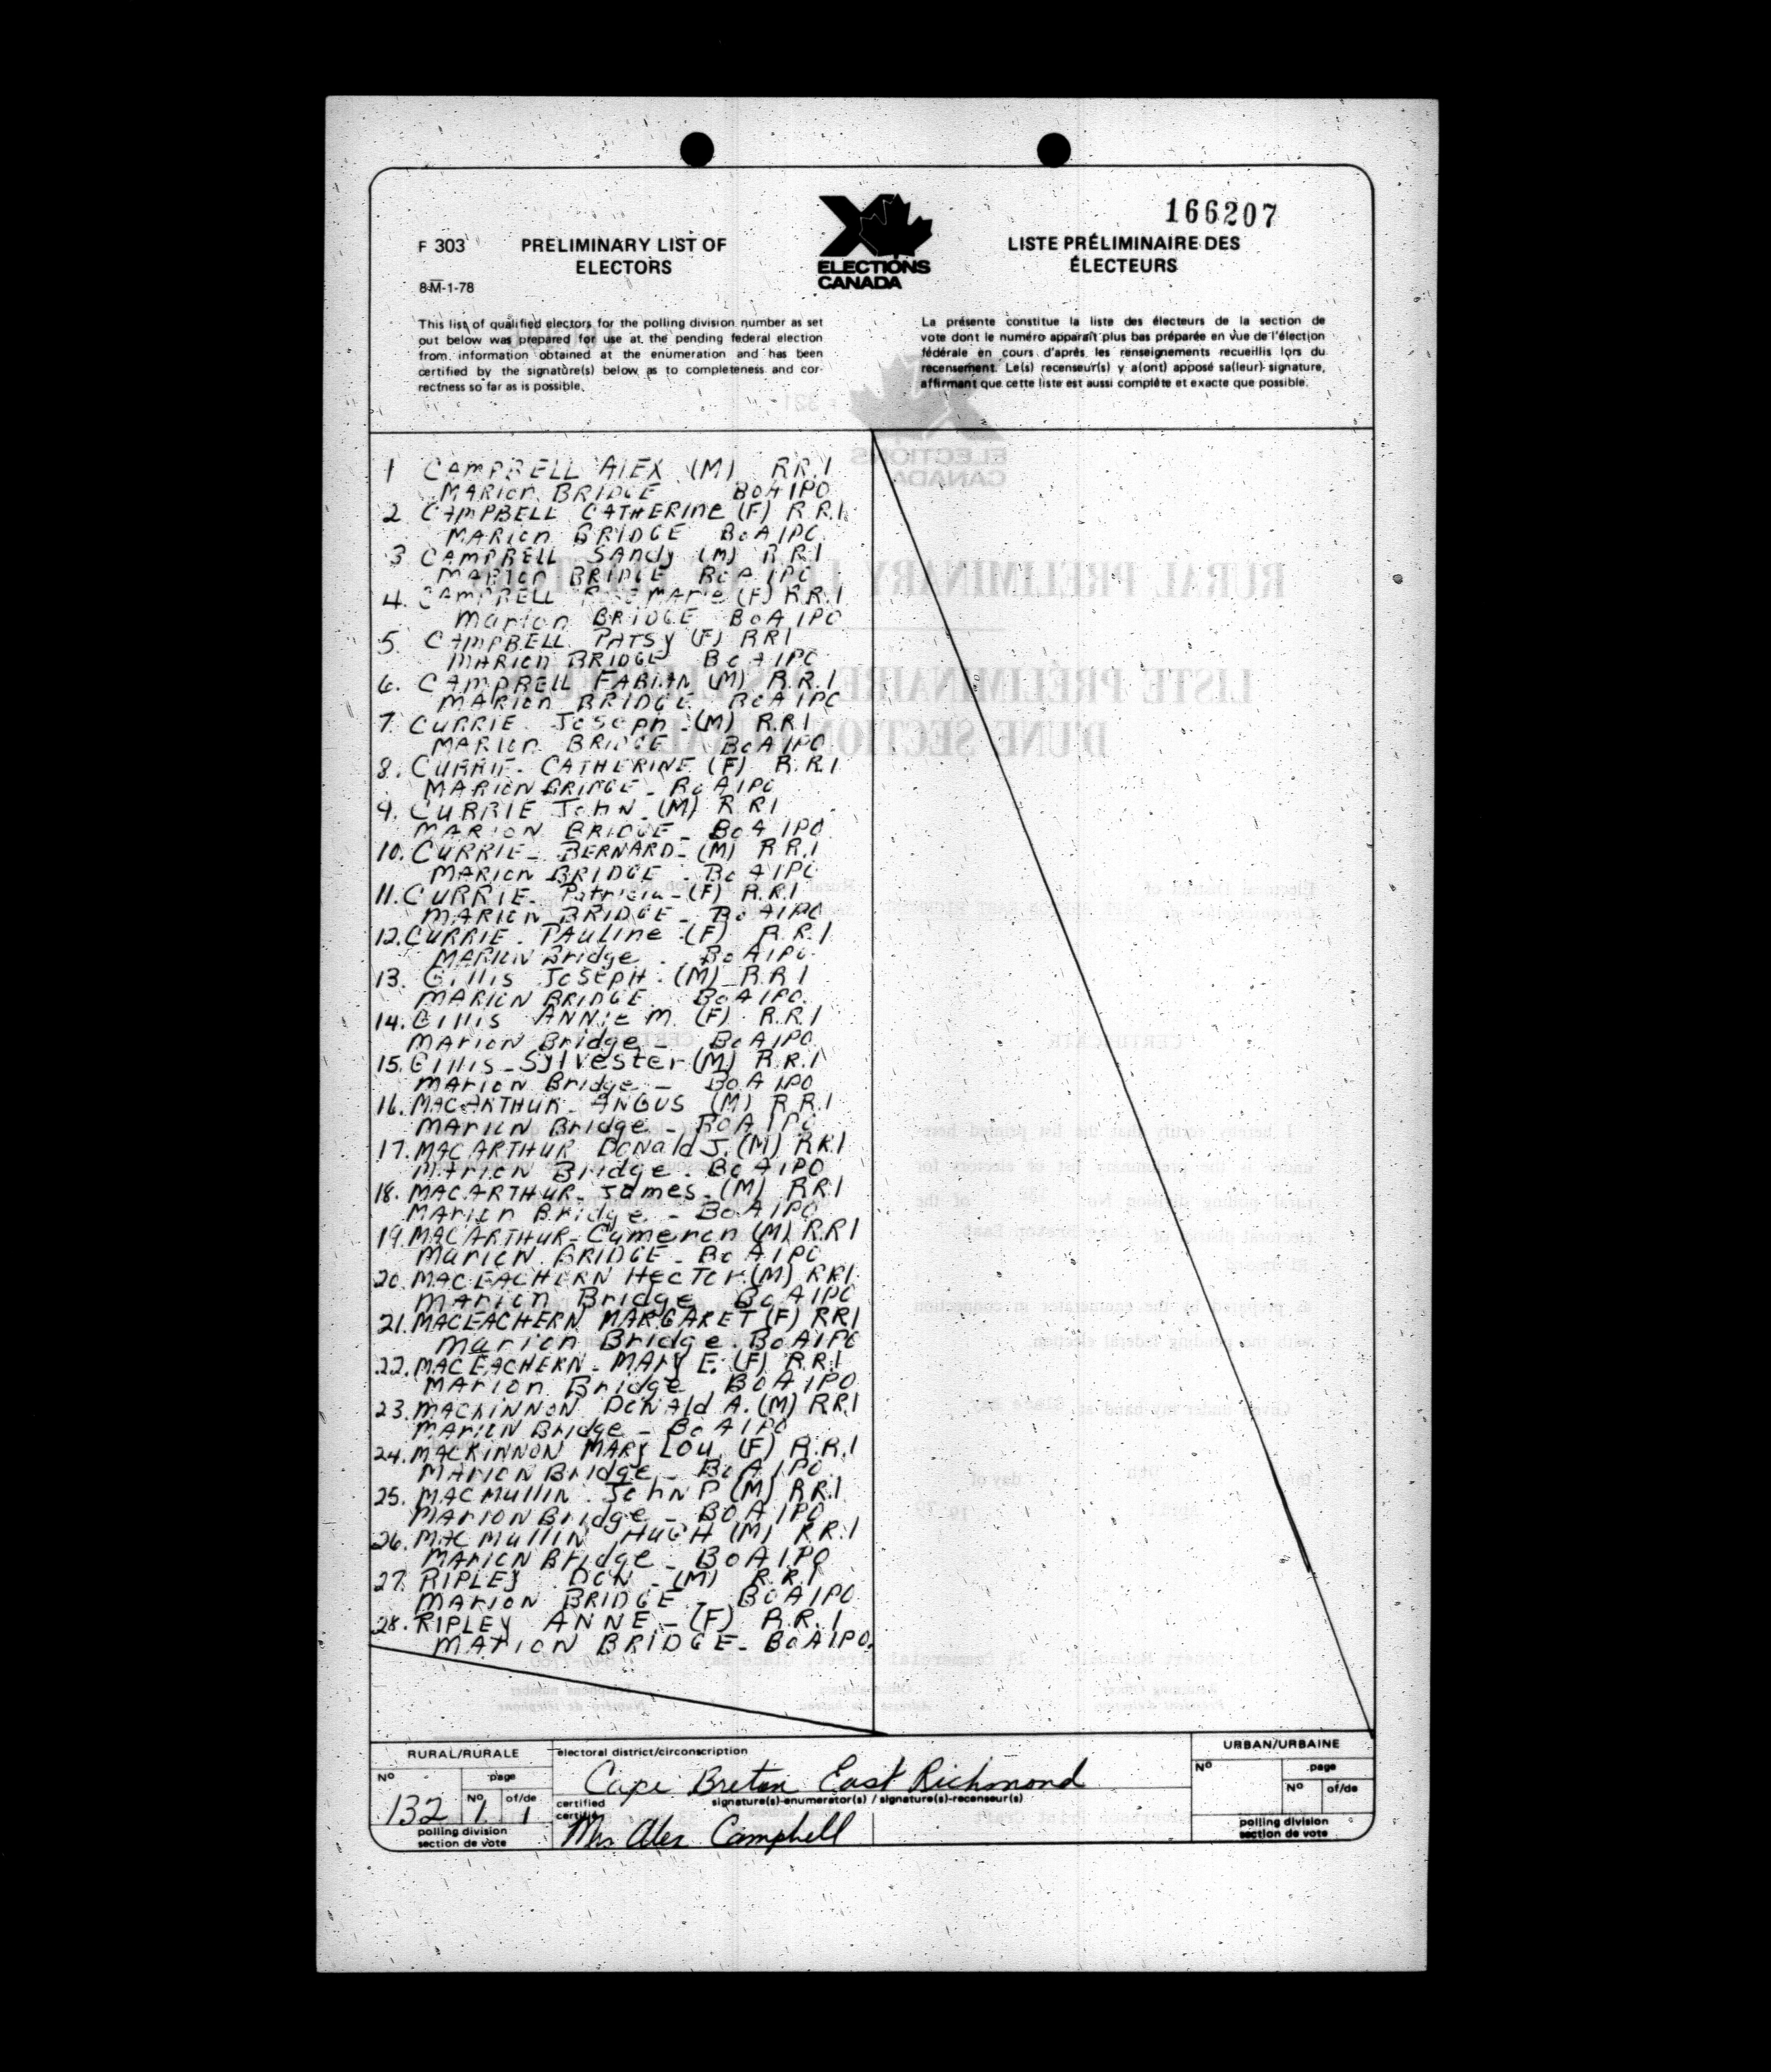 166207
F 303
PRELIMINARY LIST OF
ELECTORS
8-M-1-78
ELECTIONS
CANADA
LISTE PRÉLIMINAIRE DES
ÉLECTEURS
This list of qualified electors for the polling division number as set
out below was prepared for use at the pending federal election
from information obtained at the enumeration and has been
certified by the signature(s) below as to completeness and cor-
rectness so far as is possible.
La présente constitue la liste des électeurs de la section de
vote dont le numéro apparaît plus bas préparée en vue de l'élection
fédérale en cours d'après les renseignements recueillis lors du
recensement. Le(s) recenseur(s) y a(ont) apposé sa(leur) signature,
affirmant que cette liste est aussi complète et exacte que possible.
1 CAMPBELL ALEX (M) RR.1
MARION BRIDGE BOA 1PO
2 CAMPBELL CATHERINE (F) R.R.1
MARION BRIDGE BOA 1PO
3 CAMPBELL SANDY (M) R R 1
MARION BRIDGE BOA 1PO
4. CAMPBELL ROSEMARIE (F) R.R.1
Marion BRIDGE BOA 1PO
5. CAMPBELL PATSY (F) RR1
MARION BRIDGE BOA 1PO
6. CAMPBELL FABIAN (M) R.R.1
MARION BRIDGE BOA 1PO
7. CURRIE Joseph (M) R.R1
MARION BRIDGE BOA 1PO
8. CURRIE - CATHERINE (F) R.R.1
MARION BRIDGE - BOA 1PO
9. CURRIE JOHN (M) R R1
MARION BRIDGE - BOA 1PO
10. CURRIE - BERNARD - (M) R R.1
MARION BRIDGE - BOA 1PO
11. CURRIE - Patricia - (F) R.R.1
MARION BRIDGE - BOA 1PO
12. CURRIE - PAULINE (F) R.R.1
MARION Bridge BOA 1PO
13. GILLIS JOSEPH (M) R.R 1
MARION BRIDGE BOA 1PO
14. GILLIS ANNIE M. (F) R.R.1
MARION Bridge - BOA 1PO
15. GILLIS - Sylvester (M) R.R.1
MARION Bridge - BOA 1PO
16. MACARTHUR - ANGUS (M) R R.1
MARION Bridge - BOA 1PO
17. MACARTHUR DONALD J. (M) RR1
MARION Bridge. BOA 1PO
18. MACARTHUR - James - (M) RR1
MARION Bridge - BOA 1PO
19. MACARTHUR - Cameron (M) R.R1
MARION BRIDGE - BOA 1PO
20. MACEACHERN HECTOR (M) RR1
MARION Bridge BOA 1PO
21. MACEACHERN MARGARET (F) RR1
Marion Bridge. BOA 1PO
22. MACEACHERN - MARY E. (F) R.R.1
MARION Bridge BOA 1PO
23. MACKINNON DONALD A. (M) RR1
MARION Bridge - BOA 1PO
24. MACKINNON MARY LOU (F) R.R.1
MARION Bridge - BOA 1PO
25. MACMULLIN JOHN P (M) RR.1
MARION Bridge - BOA 1PO
26. MACMULLIN HUGH (M) R.R.1
MARION Bridge - BOA 1PO
27. RIPLEY DON - (M) R.R.1
MARION BRIDGE - BOA 1PO
28. RIPLEY ANNE - (F) R.R.1
MARION BRIDGE - BOA 1PO.
RURAL/RURALE
No
132
page
No
1
of/de
1
polling division
section de vote
electoral district/circonscription
Cape Breton East Richmond
signature(s)-enumerator(s) / signature(s)-recenseur(s)
certified
certifiée
Mrs Alex Campbell
URBAN/URBAINE
No
page
No
of/de
polling division
section de vote